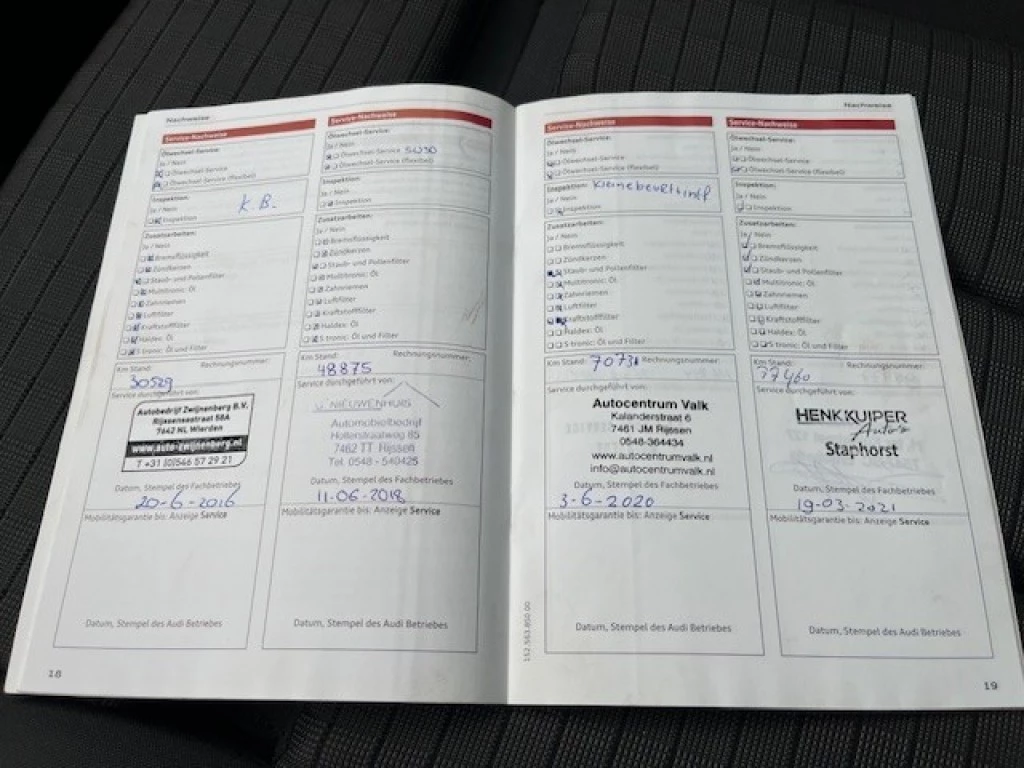 Nachweise
Service-Nachweise
Ölwechsel-Service:
Ja / Nein
Ölwechsel-Service
Ölwechsel-Service (flexibel)
Inspektion:
Ja / Nein
K.B.
Inspektion
Zusatzarbeiten:
Ja / Nein
Bremsflüssigkeit
Zündkerzen
Staub- und Pollenfilter
Multitronic: Öl
Zahnriemen
Luftfilter
Kraftstofffilter
Haldex: Öl
S tronic: Öl und Filter
Km Stand: Rechnungsnummer:
30529
Service durchgeführt von:
Autobedrijf Zwijnenberg B.V.
Rijssensestraat 58A
7642 NL Wierden
www.auto-zwijnenberg.nl
T +31 (0)546 57 29 21
Datum, Stempel des Fachbetriebes
20-6-2016
Mobilitätsgarantie bis: Anzeige Service
Datum, Stempel des Audi Betriebes
18
Service-Nachweise
Ölwechsel-Service:
Ja / Nein
Ölwechsel-Service 5W30
Ölwechsel-Service (flexibel)
Inspektion:
Ja / Nein
Inspektion
Zusatzarbeiten:
Ja / Nein
Bremsflüssigkeit
Zündkerzen
Staub- und Pollenfilter
Multitronic: Öl
Zahnriemen
Luftfilter
Kraftstofffilter
Haldex: Öl
S tronic: Öl und Filter
Km Stand: Rechnungsnummer:
48875
Service durchgeführt von:
NIEUWENHUIS
Automobielbedrijf
Holterstraatweg 85
7462 TT Rijssen
Tel. 0548 - 540425
Datum, Stempel des Fachbetriebes
11-06-2018
Mobilitätsgarantie bis: Anzeige Service
Datum, Stempel des Audi Betriebes
Nachweise
Service-Nachweise
Ölwechsel-Service:
Ja / Nein
Ölwechsel-Service
Ölwechsel-Service (flexibel)
Inspektion:
Ja / Nein
Inspektion
Zusatzarbeiten:
Ja / Nein
Bremsflüssigkeit
Zündkerzen
Staub- und Pollenfilter
Multitronic: Öl
Zahnriemen
Luftfilter
Kraftstofffilter
Haldex: Öl
S tronic: Öl und Filter
Km Stand: 70731 Rechnungsnummer:
Service durchgeführt von:
Autocentrum Valk
Kalanderstraat 6
7461 JM Rijssen
0548-364434
www.autocentrumvalk.nl
info@autocentrumvalk.nl
Datum, Stempel des Fachbetriebes
3-6-2020
Mobilitätsgarantie bis: Anzeige Service
Datum, Stempel des Audi Betriebes
152.563.850.00
Service-Nachweise
Ölwechsel-Service:
Ja / Nein
Ölwechsel-Service
Ölwechsel-Service (flexibel)
Inspektion:
Ja / Nein
Inspektion
Zusatzarbeiten:
Ja / Nein
Bremsflüssigkeit
Zündkerzen
Staub- und Pollenfilter
Multitronic: Öl
Zahnriemen
Luftfilter
Kraftstofffilter
Haldex: Öl
S tronic: Öl und Filter
Km Stand: Rechnungsnummer:
77460
Service durchgeführt von:
HENK KUIPER
Auto's
Staphorst
Datum, Stempel des Fachbetriebes
19-03-2021
Mobilitätsgarantie bis: Anzeige Service
Datum, Stempel des Audi Betriebes
19